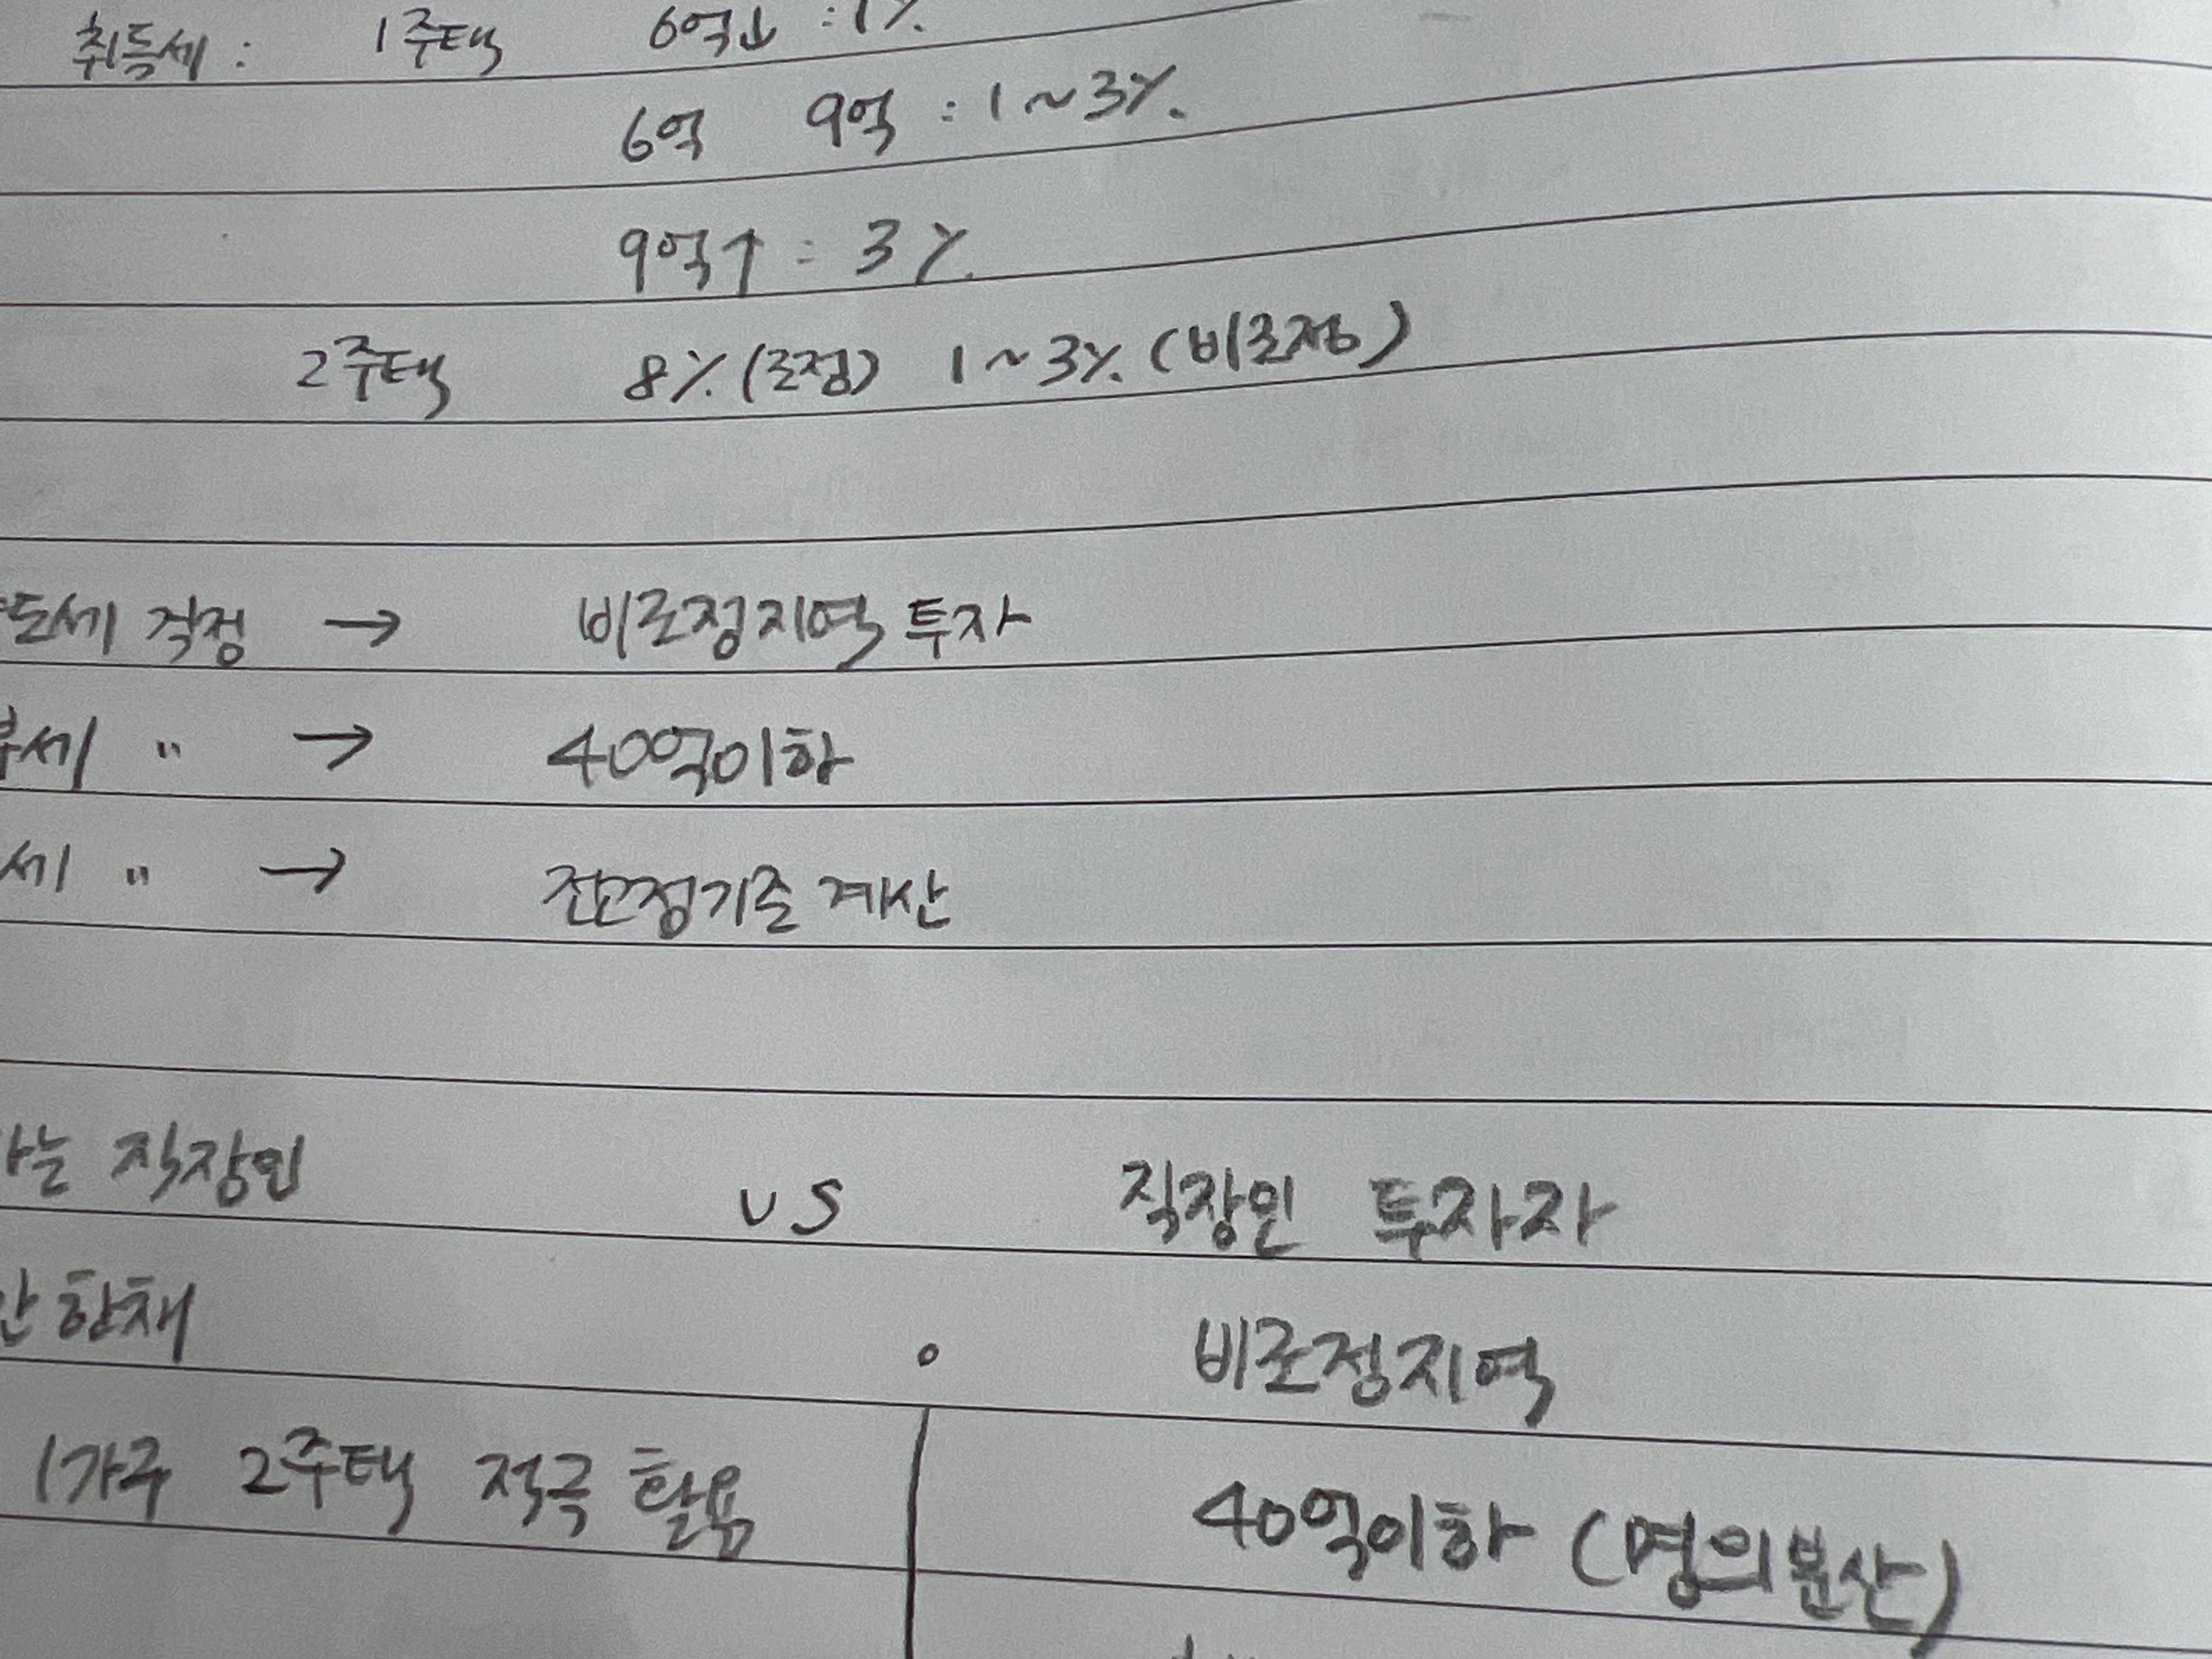 취득세 : 1주택 6억↓ : 1%.
6억 9억 : 1~3%.
9억↑ : 3%.
2주택 8%(조정) 1~3%.(비조정)
도세 걱정 → 비조정지역 투자
부세 " → 40억이하
세 " → 잔고정기준 계산
는 직장인 vs 직장인 투자자
한채 ∘ 비조정지역
1가구 2주택 적극 활용 40억이하 (명의분산)